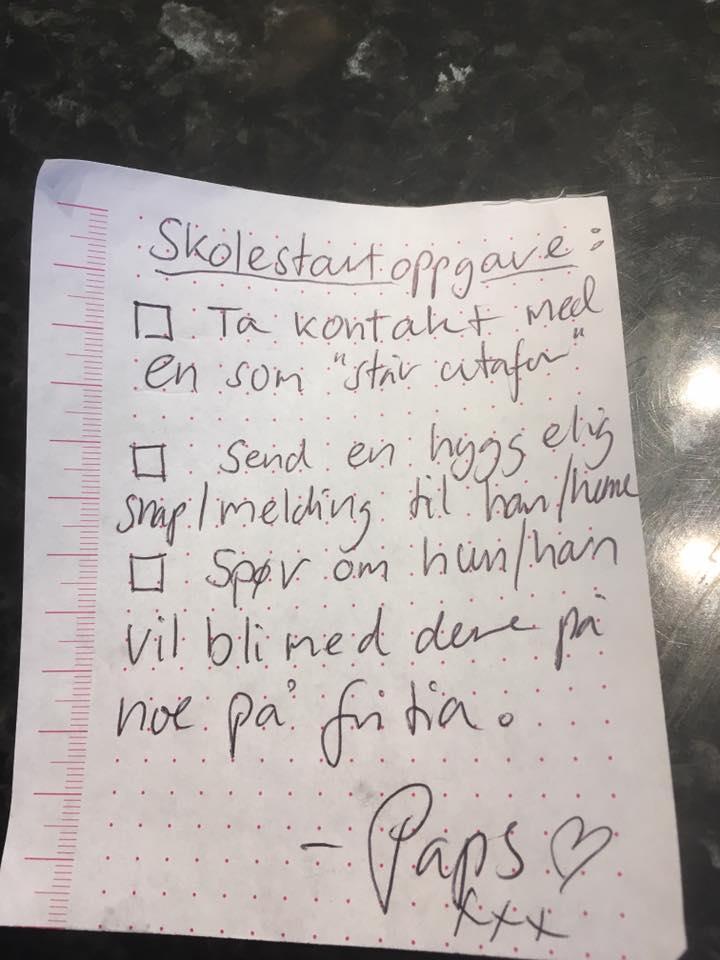 Skolestartoppgave:
☐ Ta kontakt med
en som "står utafor"
☐ Send en hyggselig
snap/melding til han/henne
☐ Spør om hun/han
vil bli med dere på
noe på fritia.
- Paps ♡
xxx